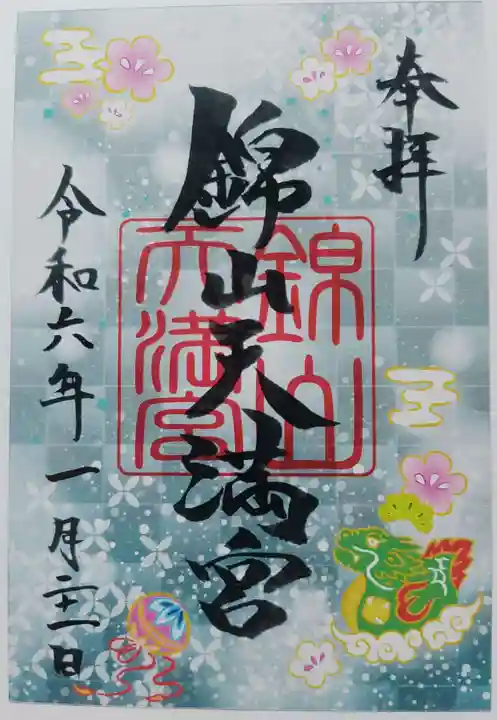 奉拝
錦山天満宮
錦山
天満宮
令和六年一月二十一日